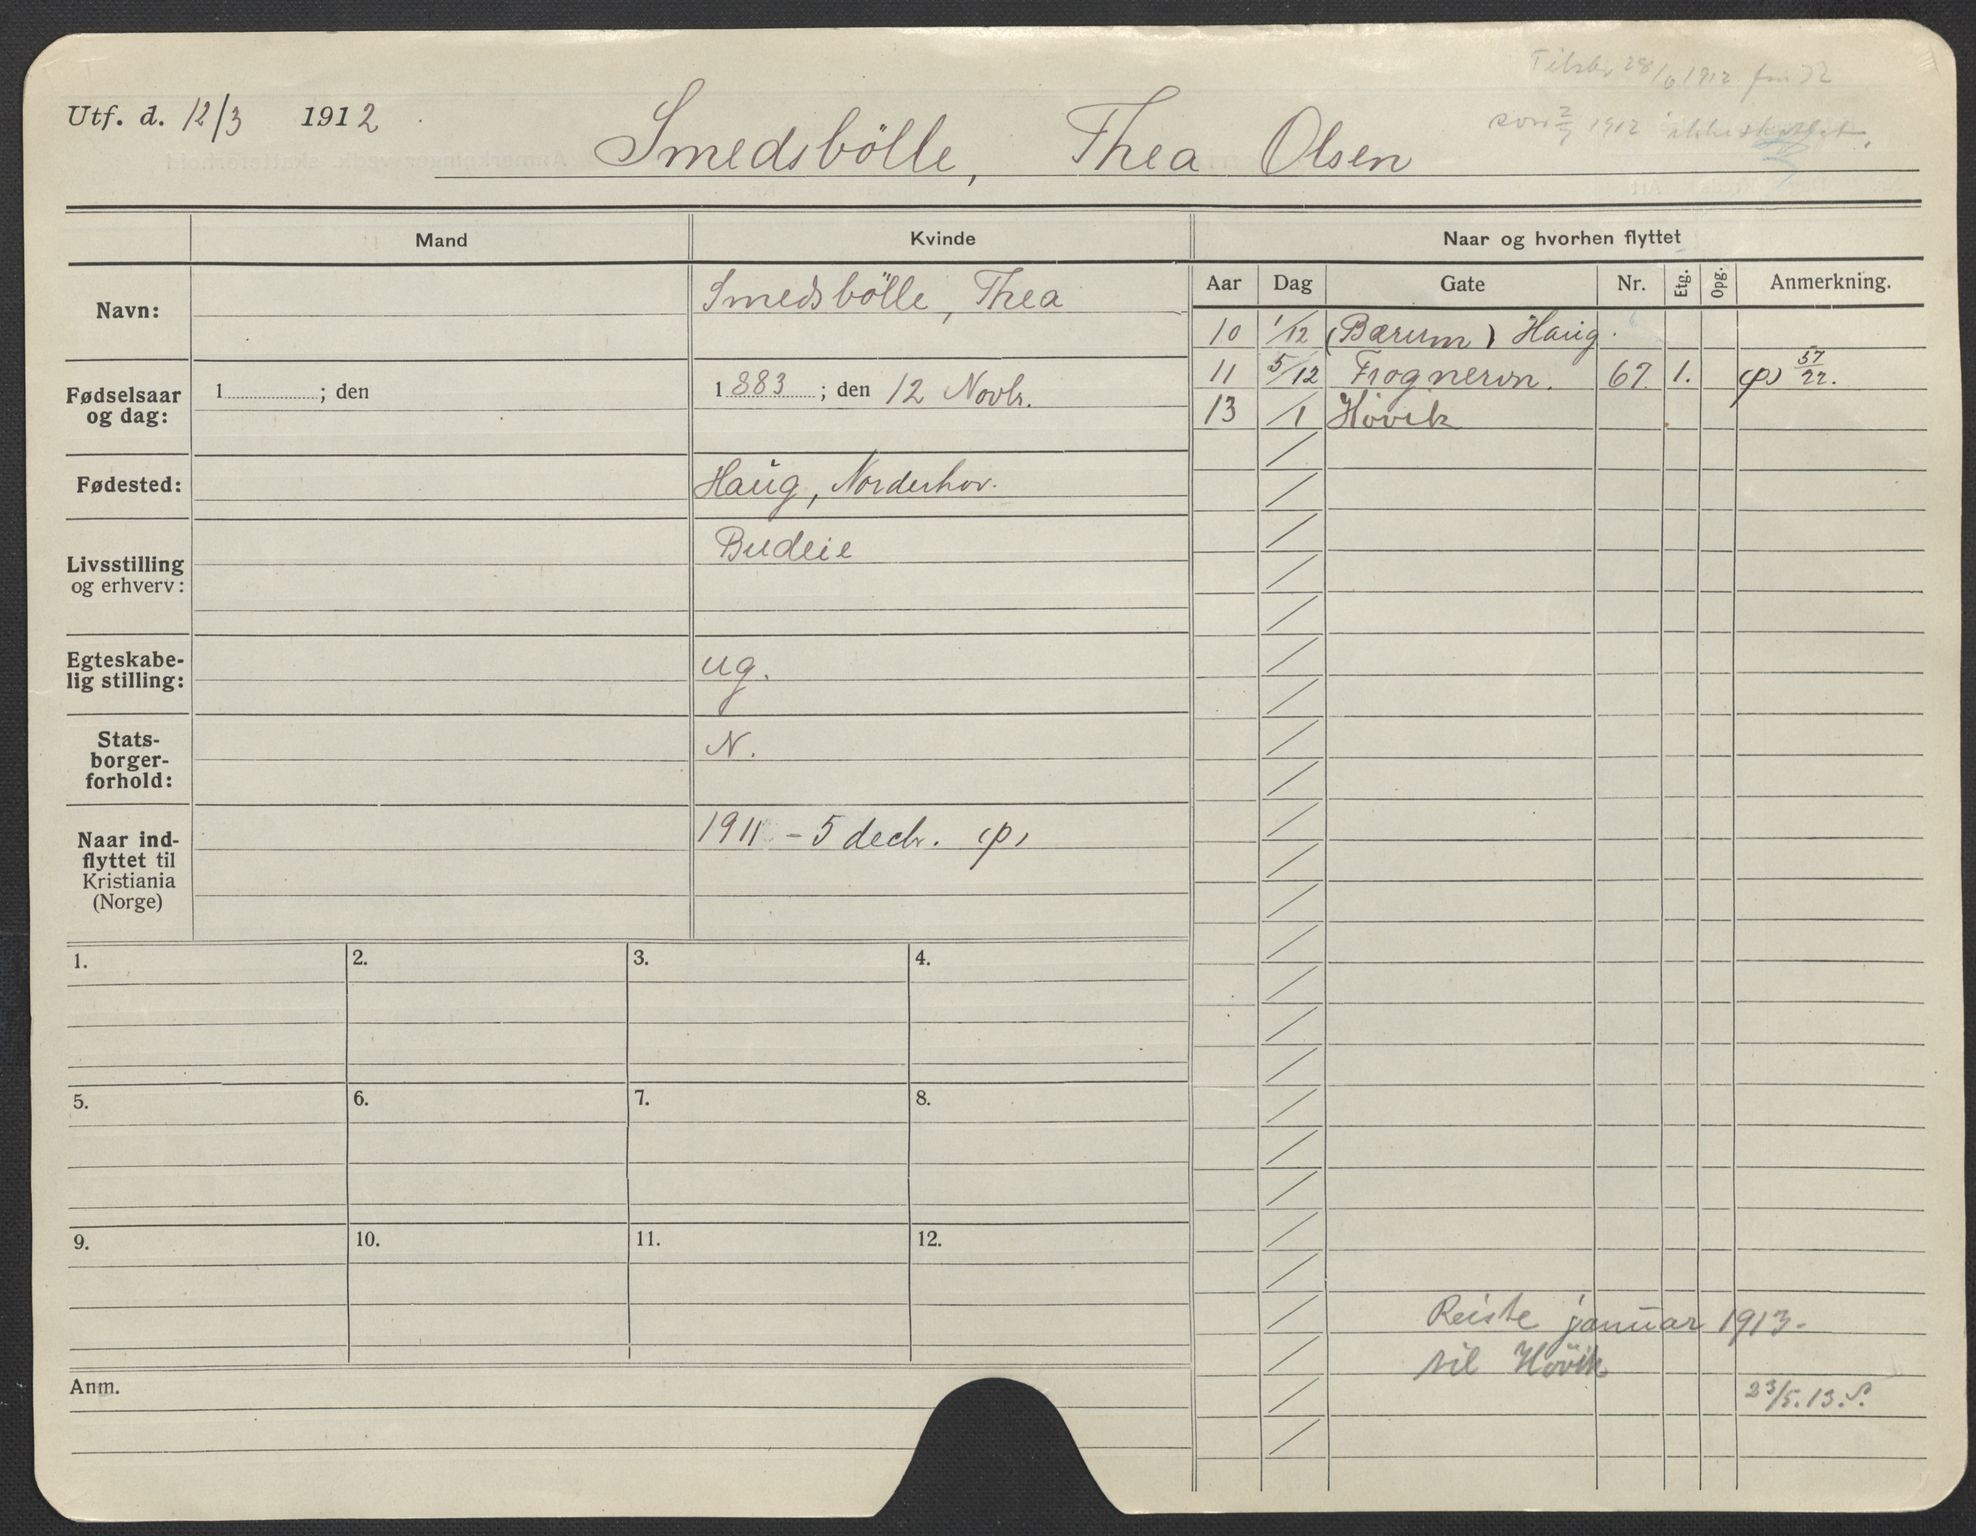 Tilskr. 28/6 1912
svar 2/7 1912 ikke
Utf. d. 12/3 1912
Smedsbölle, Thea Olsen
Mand
Kvinde
Naar og hvorhen flyttet
Aar Dag Gate Nr. Etg. Opg. Anmerkning.
Navn:
Smedsbölle, Thea
Fødselsaar
og dag:
1 ; den
1883 ; den 12 Novbr.
Fødested:
Haug, Norderhov.
Livsstilling
og erhverv:
Budeie
Egteskabe-
lig stilling:
ug.
Stats-
borger-
forhold:
N.
Naar ind-
flyttet til
Kristiania
(Norge)
1911 - 5 decbr. (p)
10 1/12 (Bærum) Haug.
11 5/12 Frognervn. 67 1. (p) 57/22.
13 /1 Høvik
1. 2. 3. 4.
5. 6. 7. 8.
9. 10. 11. 12.
Anm.
Reiste januar 1913.
til Høvik
23/5.13.S.